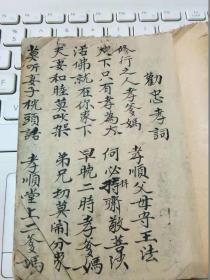 勸忠孝詞
修行之人孝爹媽 孝順父母守王法
天下只有孝為大 何必持齋敬菩薩
活佛就在你家下 早晚二時孝爹媽
夫妻和睦莫吵架 弟兄切莫鬧分家
莫听妻子枕頭話 孝順堂上二爹媽